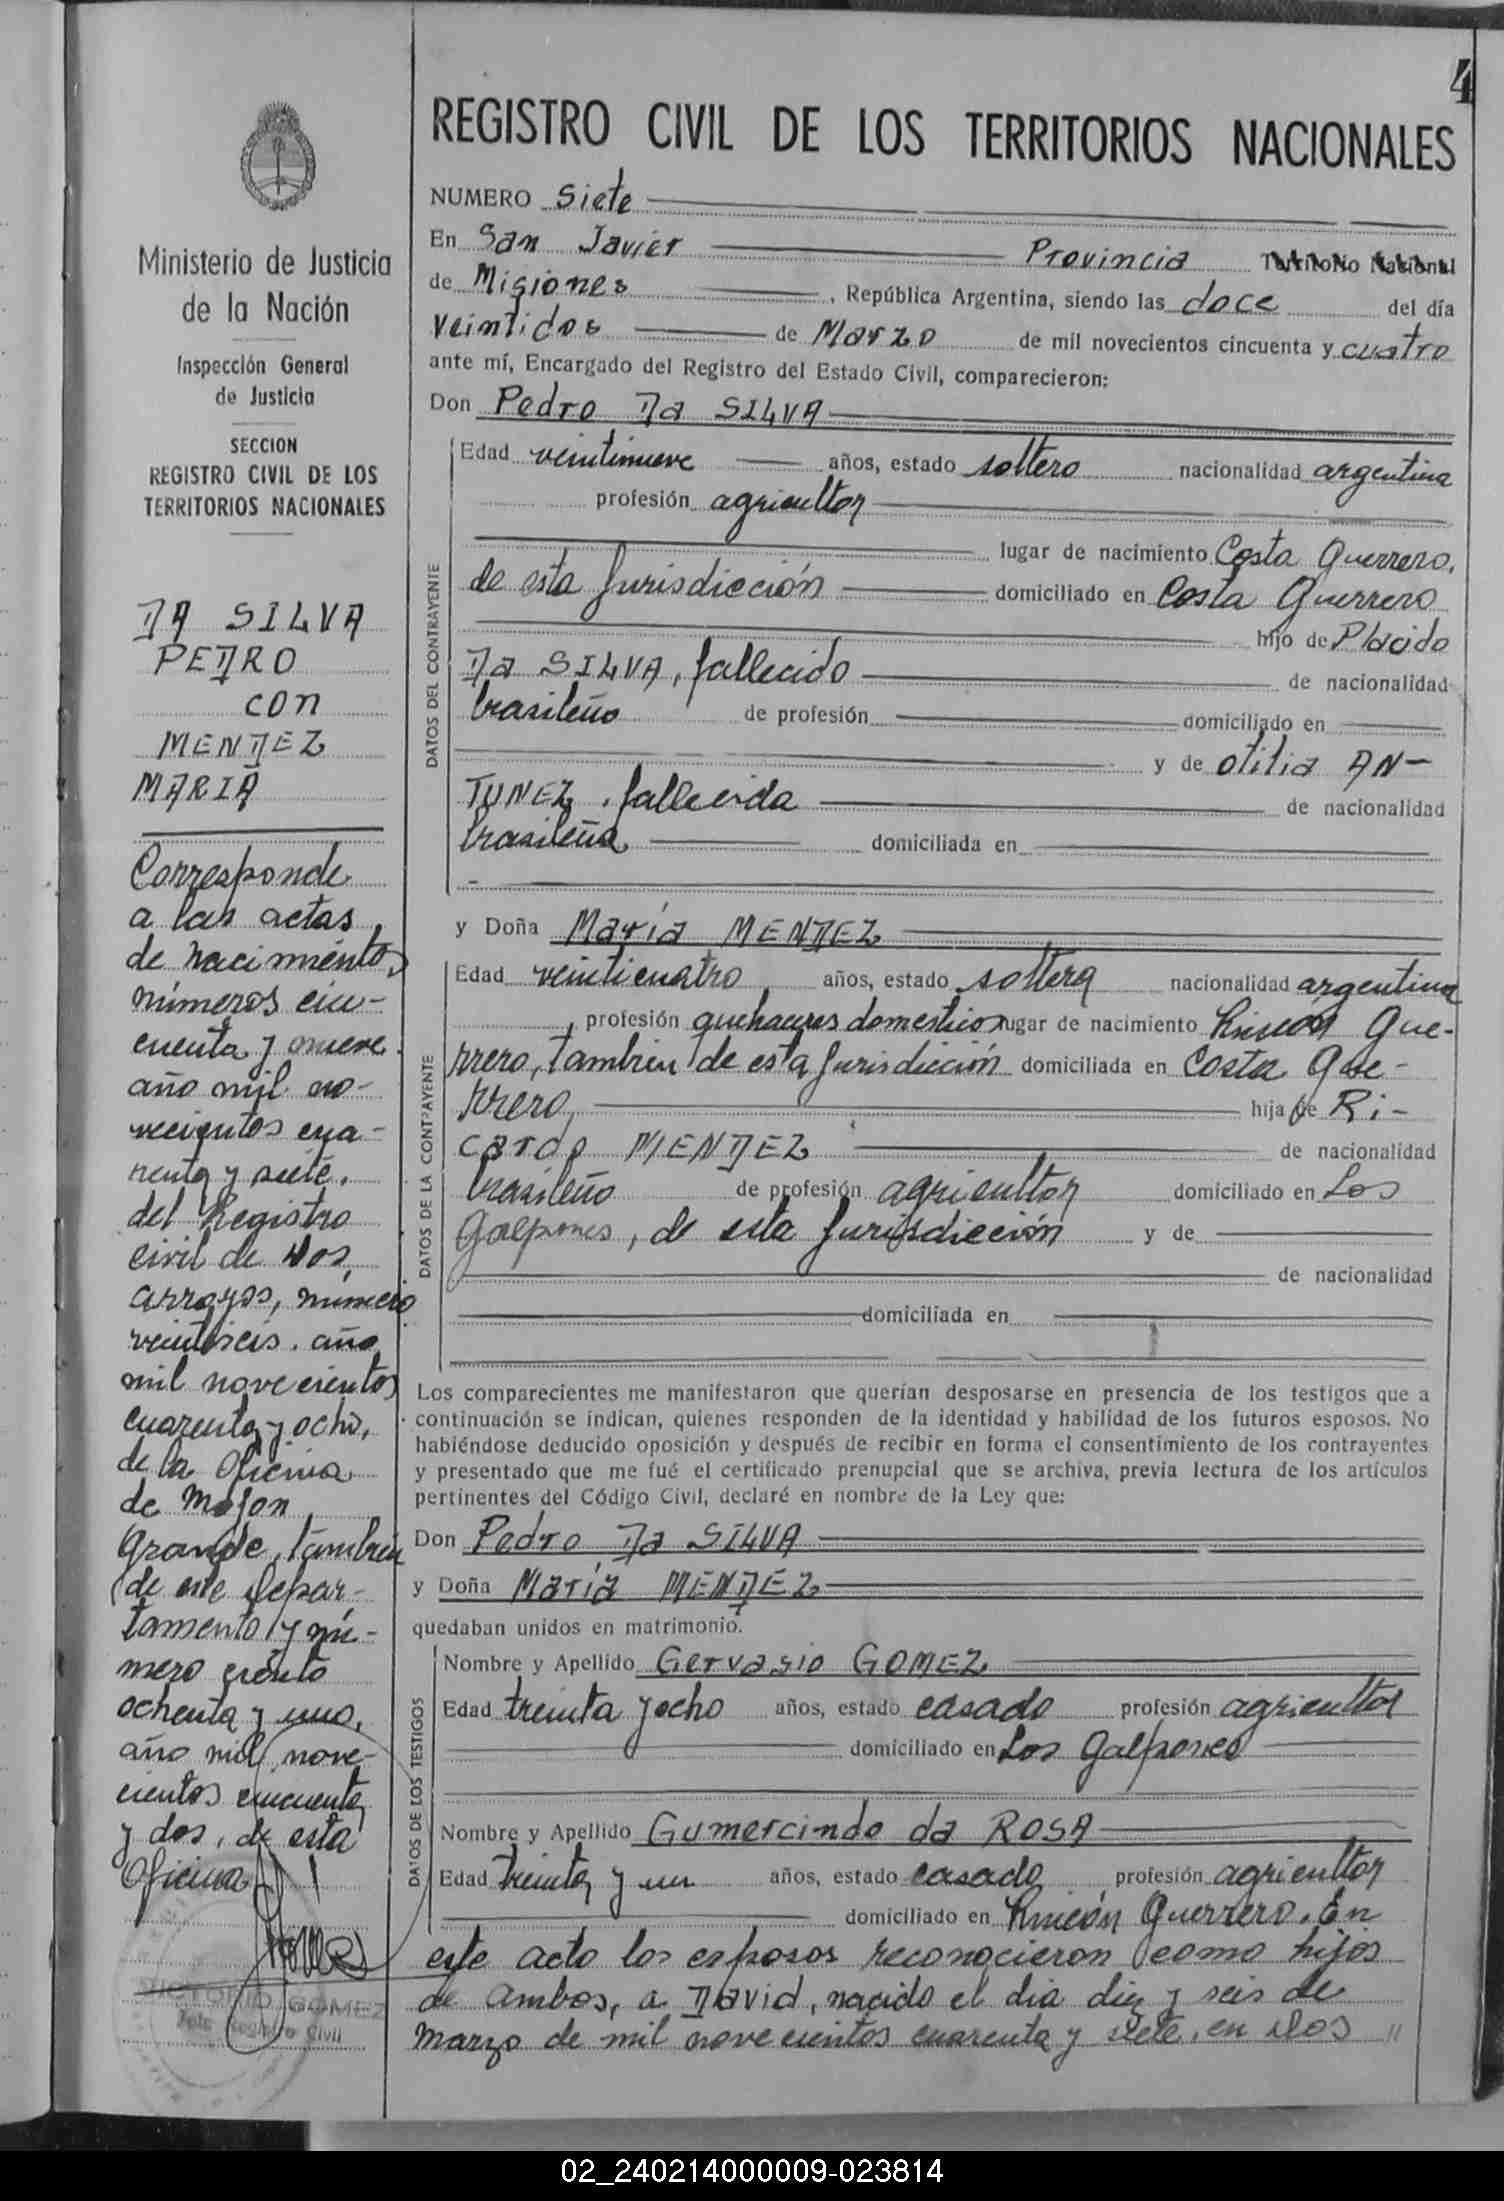 4
REGISTRO CIVIL DE LOS TERRITORIOS NACIONALES
NUMERO Siete
En San Javier Provincia Territorio Nacional
de Misiones , República Argentina, siendo las doce del día
veintidos de Marzo de mil novecientos cincuenta y cuatro
ante mí, Encargado del Registro del Estado Civil, comparecieron:
Don Pedro Da SILVA
DATOS DEL CONTRAYENTE
Edad veintinueve años, estado soltero nacionalidad argentina
profesión agricultor
lugar de nacimiento Costa Guerrero,
de esta Jurisdicción domiciliado en Costa Guerrero
hijo de Placido
Da SILVA, fallecido de nacionalidad
brasileño de profesión domiciliado en
y de Otilia AN-
TUNEZ, fallecida de nacionalidad
brasileña domiciliada en
y Doña María MENDEZ
DATOS DE LA CONTRAYENTE
Edad veinticuatro años, estado soltera nacionalidad argentina
, profesión quehaceres domesticos lugar de nacimiento Rincón Gue-
rrero, tambien de esta Jurisdicción domiciliada en Costa Gue-
rrero, hija de Ri-
cardo MENDEZ de nacionalidad
brasileño de profesión agricultor domiciliado en Los
Galpones, de esta Jurisdicción y de
de nacionalidad
domiciliada en
Los comparecientes me manifestaron que querían desposarse en presencia de los testigos que a
continuación se indican, quienes responden de la identidad y habilidad de los futuros esposos. No
habiéndose deducido oposición y después de recibir en forma el consentimiento de los contrayentes
y presentado que me fué el certificado prenupcial que se archiva, previa lectura de los artículos
pertinentes del Código Civil, declaré en nombre de la Ley que:
Don Pedro Da SILVA
y Doña María MENDEZ
quedaban unidos en matrimonio.
DATOS DE LOS TESTIGOS
Nombre y Apellido Gervasio GOMEZ
Edad treinta y ocho años, estado casado profesión agricultor
domiciliado en Los Galpones
Nombre y Apellido Gumercindo da ROSA
Edad treinta y un años, estado casado profesión agricultor
domiciliado en Rincón Guerrero. En
este acto los esposos reconocieron como hijos
de ambos, a David, nacido el dia diez y seis de
marzo de mil novecientos cuarenta y siete, en Dos //
Ministerio de Justicia
de la Nación
Inspección General
de Justicia
SECCION
REGISTRO CIVIL DE LOS
TERRITORIOS NACIONALES
DA SILVA
PEDRO
con
MENDEZ
MARIA
Corresponde
a las actas
de nacimientos
números cin-
cuenta y nueve
año mil no-
vecientos cua-
renta y siete,
del Registro
civil de Dos
arroyos, número
veintiseis, año
mil novecientos
cuarenta y ocho,
de la Oficina
de Mojon
Grande, tambien
de este Depar-
tamento y nú-
mero ciento
ochenta y uno,
año mil nove-
cientos cincuenta
y dos, de esta
Oficina
VICTORIO GOMEZ
Jefe Registro Civil
02_240214000009-023814